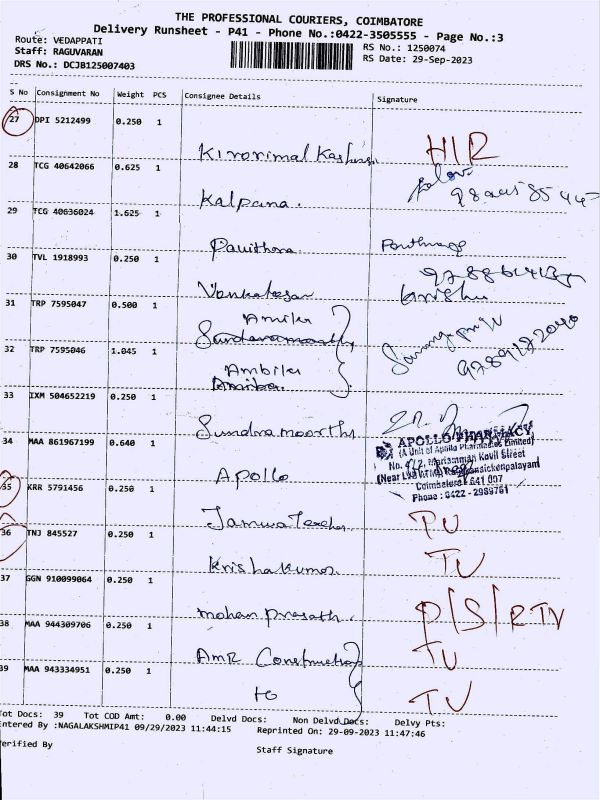 THE PROFESSIONAL COURIERS, COIMBATORE
Delivery Runsheet - P41 - Phone No.:0422-3505555 - Page No.:3
Route: VEDAPPATI
RS No.: 1250074
Staff: RAGUVARAN
RS Date: 29-Sep-2023
DRS No.: DCJB125007403
S No Consignment No Weight PCS Consignee Details Signature
27 DPI 5212499 0.250 1
Kirorimal HIR
28 TCG 40642066 0.625 1
Kalpana.
29 TCG 40636024 1.625 1
Pavithra
30 TVL 1918993 0.250 1
Venkatesan
31 TRP 7595047 0.500 1
32 TRP 7595046 1.045 1
Ambika
33 IXM 504652219 0.250 1
34 MAA 861967199 0.640 1
APOLLO PHARMACY
(A Unit of Apollo Pharmacies Limited)
Mariamman Kovil Street
Coimbatore - 641 007
Phone : 0422 - 2989761
Apollo
35 KRR 5791456 0.250 1
PU
36 TNJ 845527 0.250 1
Krishakumar TU
37 GGN 910099064 0.250 1
mohan prasath. P/S/RTV
38 MAA 944309706 0.250 1
AMR Construction TU
39 MAA 943334951 0.250 1
to TU
Tot Docs: 39 Tot COD Amt: 0.00 Delvd Docs: Non Delvd Docs: Delvy Pts:
Entered By :NAGALAKSHMIP41 09/29/2023 11:44:15 Reprinted On: 29-09-2023 11:47:46
Verified By
Staff Signature